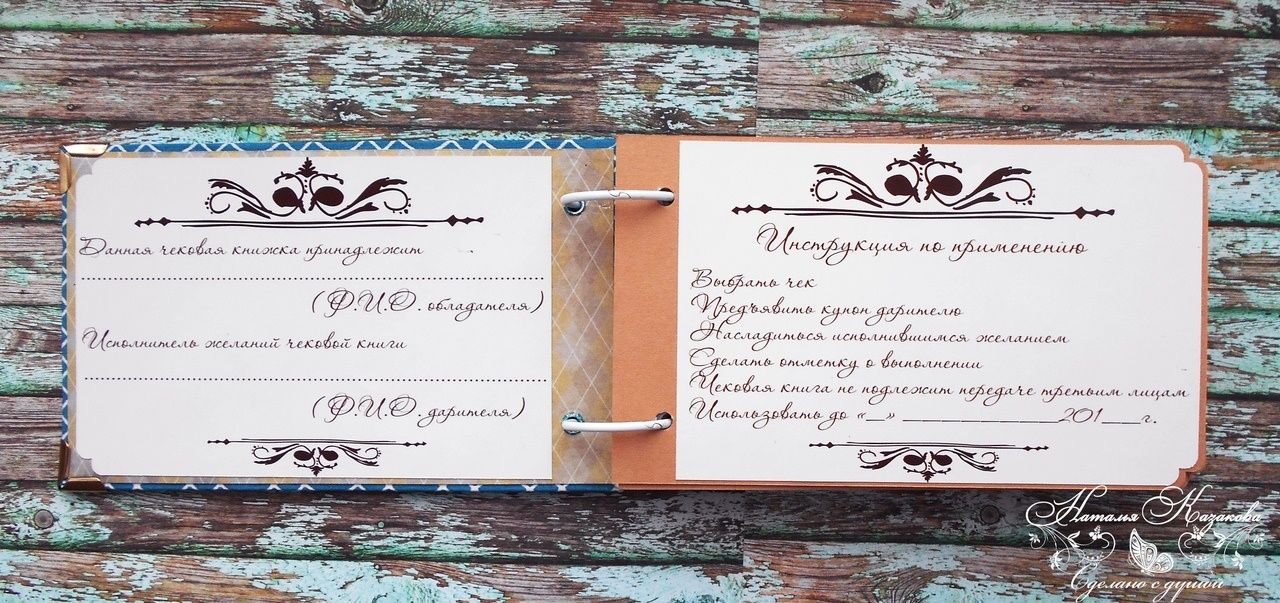 Данная чековая книжка принадлежит
(Ф.И.О. обладателя)
Исполнитель желаний чековой книги
(Ф.И.О. дарителя)
Инструкция по применению
Выбрать чек
Предъявить купон дарителю
Насладиться исполнившимся желанием
Сделать отметку о выполнении
Чековая книга не подлежит передаче третьим лицам
Использовать до «__» ________________201___г.
Наталья Казакова
Сделано с душой